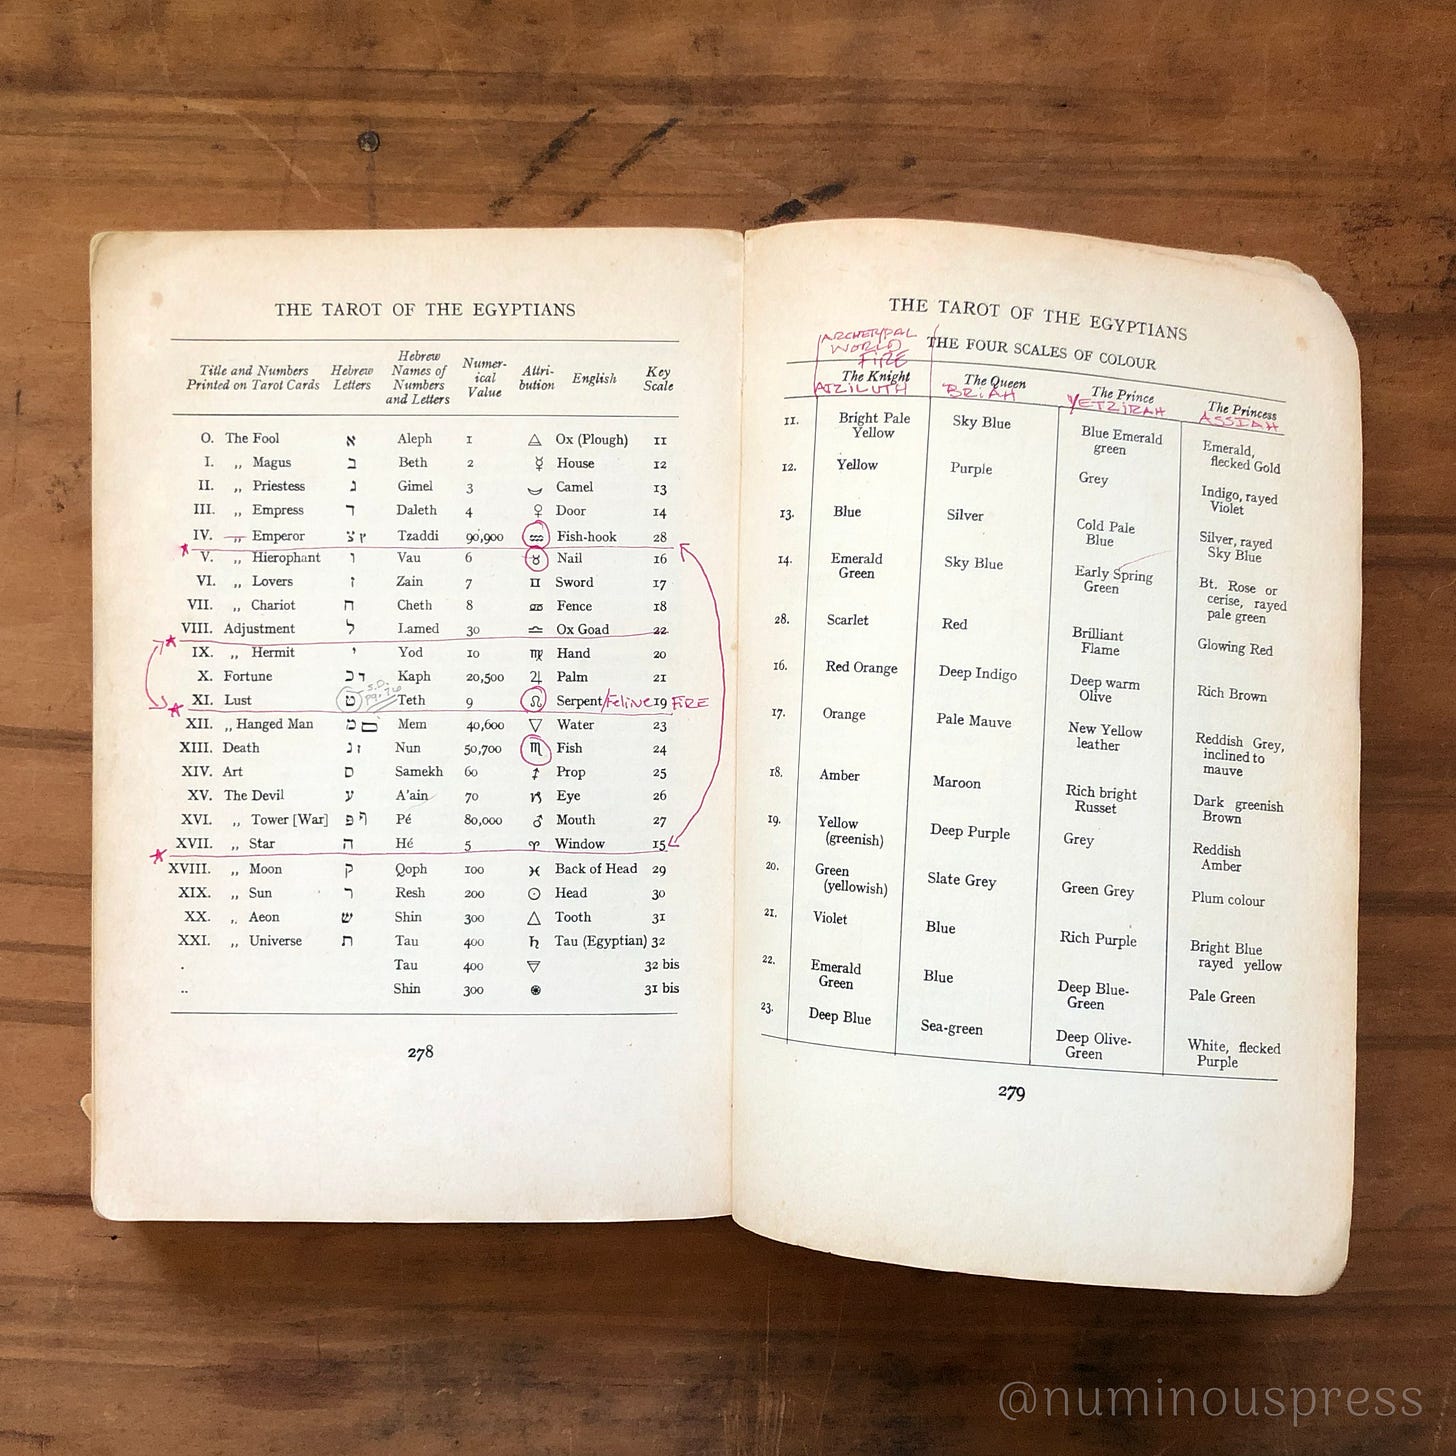 THE TAROT OF THE EGYPTIANS
Title and Numbers Printed on Tarot Cards Hebrew Letters Hebrew Names of Numbers and Letters Numer-ical Value Attri-bution English Key Scale
O. The Fool א Aleph 1 🜂 Ox (Plough) 11
I. „ Magus ב Beth 2 ☿ House 12
II. „ Priestess ג Gimel 3 ☽ Camel 13
III. „ Empress ד Daleth 4 ♀ Door 14
IV. „ Emperor צ ץ Tzaddi 90,900 ♒ Fish-hook 28
V. „ Hierophant ו Vau 6 ♉ Nail 16
VI. „ Lovers ז Zain 7 ♊ Sword 17
VII. „ Chariot ח Cheth 8 ♋ Fence 18
VIII. Adjustment ל Lamed 30 ♎ Ox Goad 22
IX. „ Hermit י Yod 10 ♍ Hand 20
X. Fortune כ ך Kaph 20,500 ♃ Palm 21
S.D. pg. 76
XI. Lust ט Teth 9 ♌ Serpent/Feline 19 FIRE
XII. „ Hanged Man מ ם Mem 40,600 🜄 Water 23
XIII. Death נ ן Nun 50,700 ♏ Fish 24
XIV. Art ס Samekh 60 ♐ Prop 25
XV. The Devil ע A'ain 70 ♑ Eye 26
XVI. „ Tower [War] פ ף Pé 80,000 ♂ Mouth 27
XVII. „ Star ה Hé 5 ♈ Window 15
XVIII. „ Moon ק Qoph 100 ♓ Back of Head 29
XIX. „ Sun ר Resh 200 ☉ Head 30
XX. „ Aeon ש Shin 300 🜂 Tooth 31
XXI. „ Universe ת Tau 400 ♄ Tau (Egyptian) 32
. Tau 400 🜃 32 bis
.. Shin 300 31 bis
278
THE TAROT OF THE EGYPTIANS
ARCHETYPAL
WORLD
FIRE
THE FOUR SCALES OF COLOUR
The Knight The Queen The Prince The Princess
ATZILUTH BRIAH YETZIRAH ASSIAH
11. Bright Pale Yellow Sky Blue Blue Emerald green Emerald, flecked Gold
12. Yellow Purple Grey Indigo, rayed Violet
13. Blue Silver Cold Pale Blue Silver, rayed Sky Blue
14. Emerald Green Sky Blue Early Spring Green Bt. Rose or cerise, rayed pale green
28. Scarlet Red Brilliant Flame Glowing Red
16. Red Orange Deep Indigo Deep warm Olive Rich Brown
17. Orange Pale Mauve New Yellow leather Reddish Grey, inclined to mauve
18. Amber Maroon Rich bright Russet Dark greenish Brown
19. Yellow (greenish) Deep Purple Grey Reddish Amber
20. Green (yellowish) Slate Grey Green Grey Plum colour
21. Violet Blue Rich Purple Bright Blue rayed yellow
22. Emerald Green Blue Deep Blue-Green Pale Green
23. Deep Blue Sea-green Deep Olive-Green White, flecked Purple
279
@numinouspress